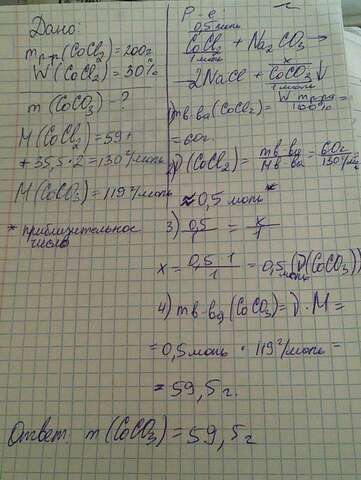 Дано:
m р-р (CoCl₂) = 200г
W (CoCl₂) = 30%
m (CoCO₃) - ?
M (CoCl₂) = 59 +
+ 35,5 · 2 = 130 г/моль
M (CoCO₃) = 119 г/моль
* приблизительное
число
Р-е:
0,5 моль x
CoCl₂ + Na₂CO₃ →
1 моль
→ 2NaCl + CoCO₃ ↓
1 моль
1) m в-ва (CoCl₂) = W · m р-ра / 100%
= 60г.
2) ν (CoCl₂) = m в-ва / M в-ва = 60г / 130 г/моль
≈ 0,5 моль *
3) 0,5 / 1 = x / 1
x = 0,5 · 1 / 1 = 0,5 моль (ν (CoCO₃))
4) m в-ва (CoCO₃) = ν · M =
= 0,5 моль · 119 г/моль =
= 59,5 г.
Ответ: m (CoCO₃) = 59,5 г